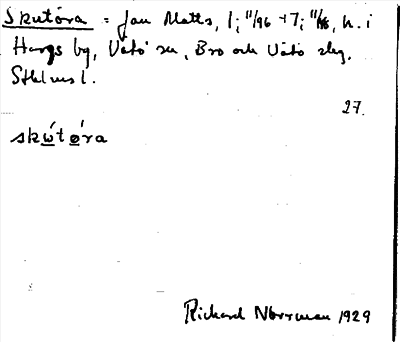 Skutöra = Jan Matts, 1; 11/96 +7; 11/98, h. i
Hargs by, Vätö sn, Bro och Vätö slg,
Sthlms l.
27.
skẃtǿra
Rickard Norrman 1929